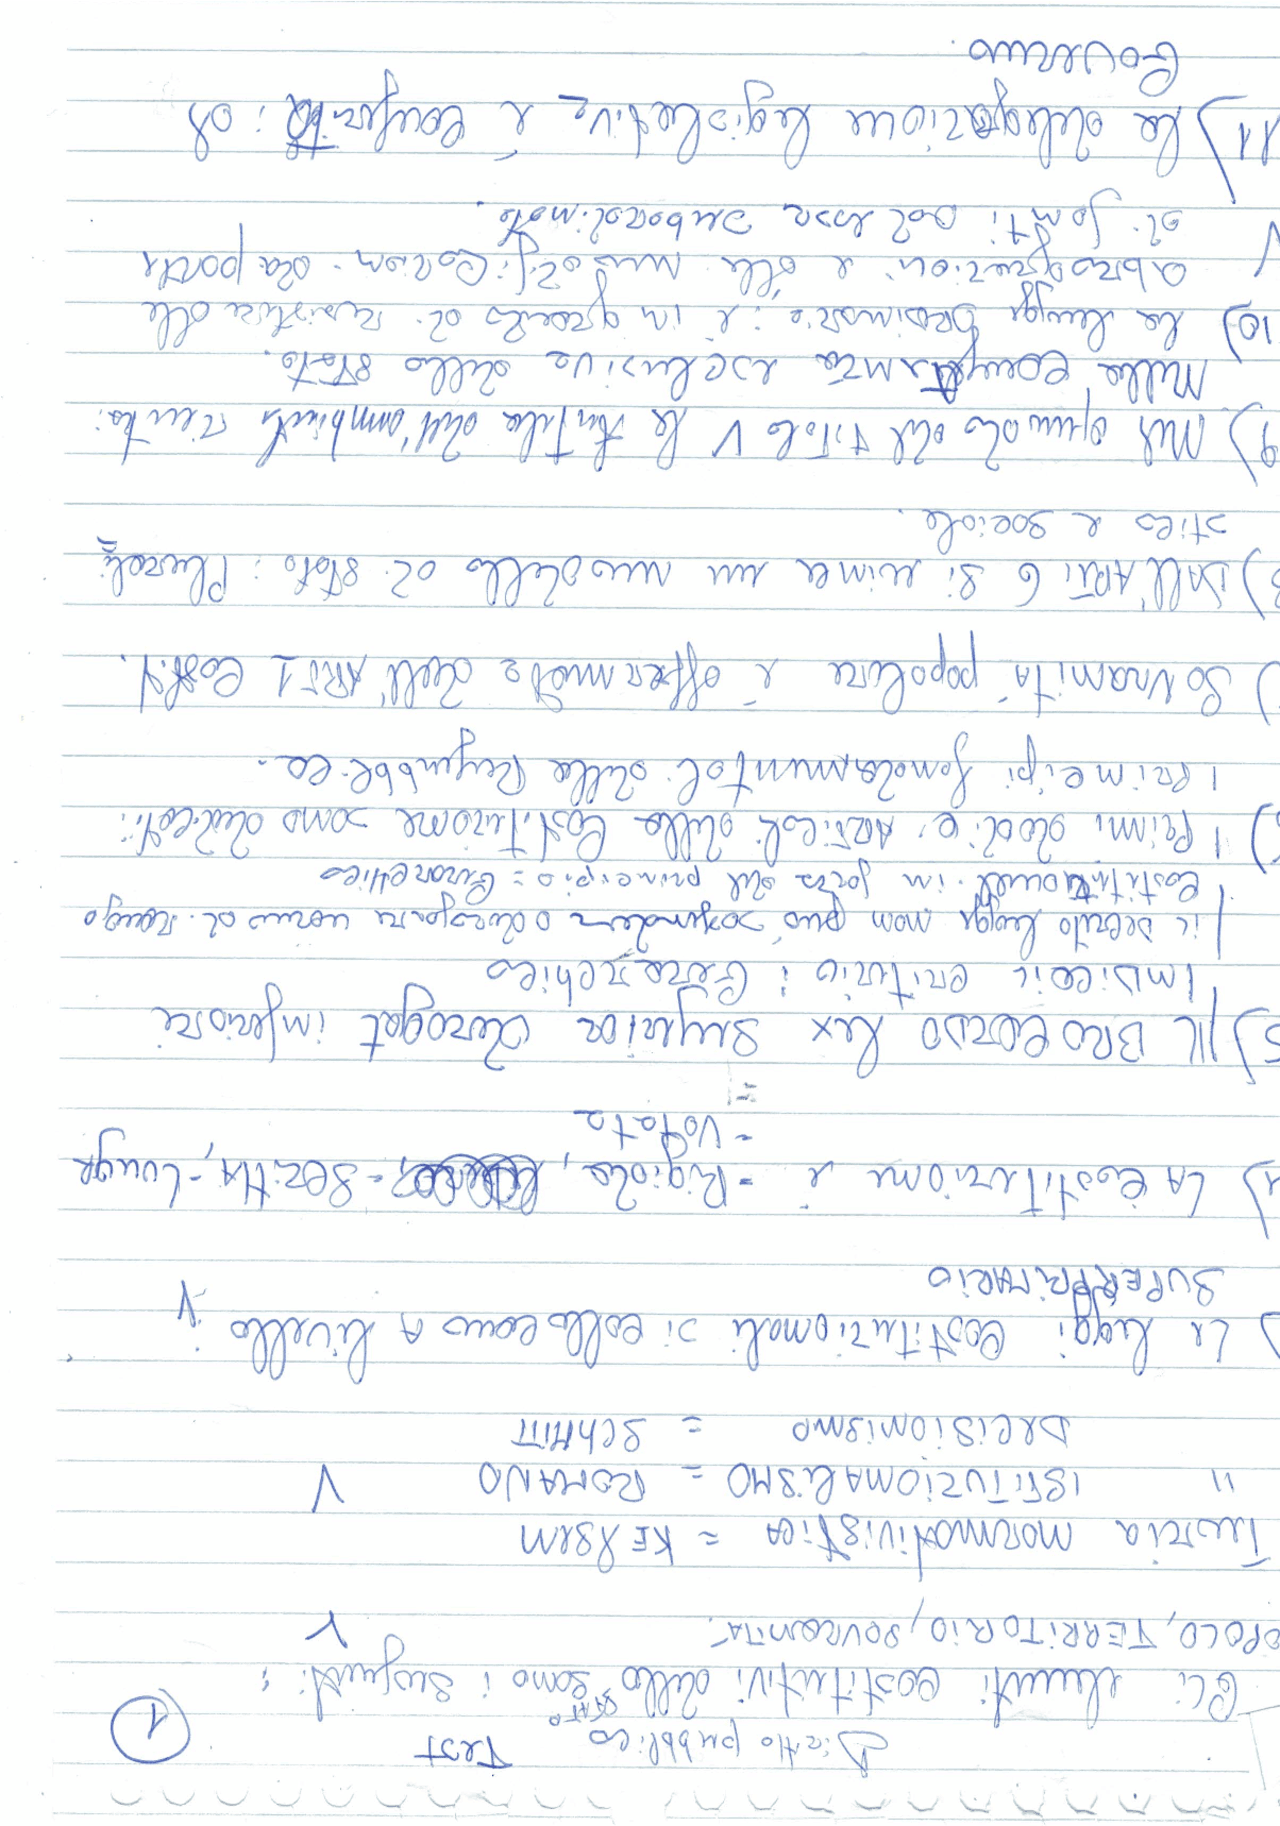 Diritto pubblico Test 1
Gli elementi costitutivi dello STATO sono i seguenti:
OPOLO, TERRITORIO, SOVRANITA'. V
Teoria normativistica = KELSEN
" ISTITUZIONALISMO = ROMANO V
DECISIONISMO = SCHMITT
) Le leggi costituzionali si collocano A livello: V
SUPERPRIMARIO
4) LA Costituzione è - Rigida, - SCRITTA, - Lunga
- Votata
5) IL BROCARDO lex superior derogat inferiore
INDICA il criterio: Gerarchico
il decreto legge non può sospendere o derogare norme di rango
costituzionali in forza del principio = Gerarchico
) I Primi dodici ARTICOLI della Costituzione sono dedicati:
I Principi fondamentali della Repubblica.
) Sovranità popolare è affermata dall'ART 1 Cost.
8) DALL'ART. 6 si evince un modello di stato: Plurali=
stico e sociale.
9) Nel quadro del titolo V la tutela dell'ambiente rientra:
Nella COMPETENZA esclusiva dello STATO.
10) la legge ordinaria: è in grado di resistere alle
abrogazioni e alle modificazioni da parte
di fonti ad essa subordinate. V
11) La delegazione legislativa è conferita: al
Governo.